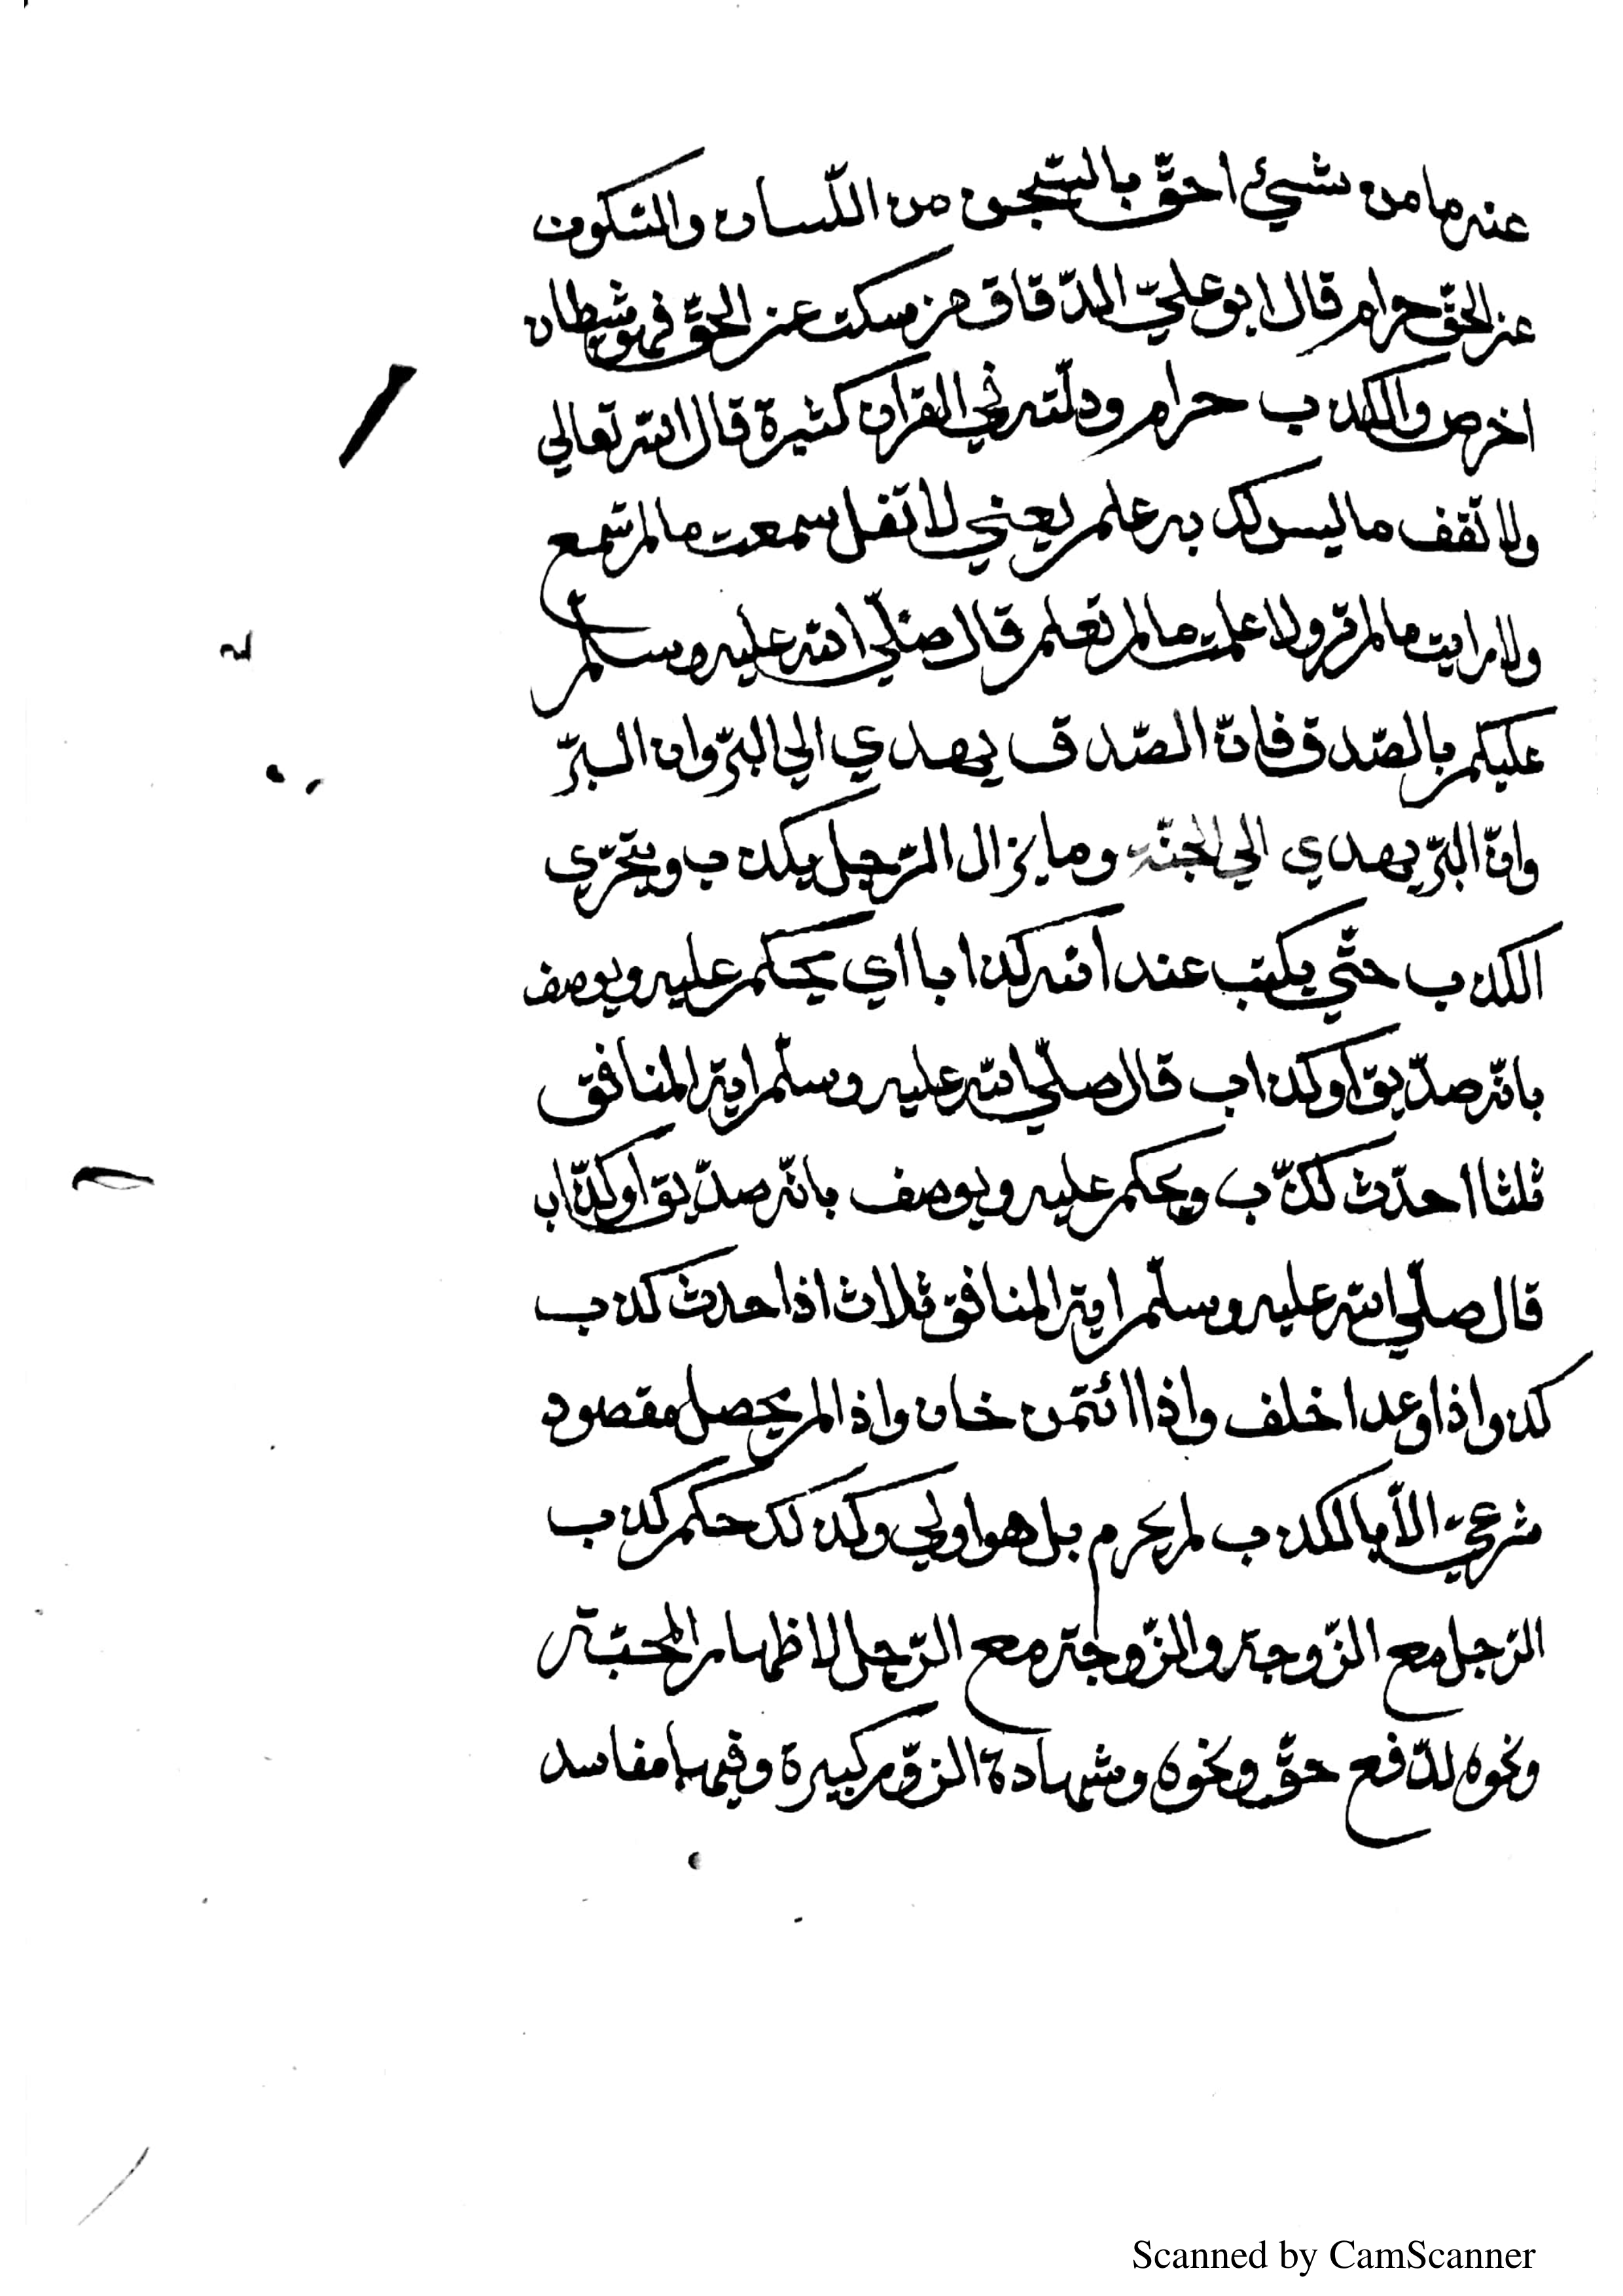 عنه ما من شيئ احقّ بالسّجن من اللّسان والسّكوت
عن الحقّ حرام قال ابو عليّ الدّقاق من سكت عن الحقّ فهو شيطان
اخرص والكذب حرام ودلّته في القران كثيرة قال الله تعالي
ولا تقف ما ليس لك به علم يعني لا تقل سمعت ما لم تسمع
ولا رايت ما لم تر ولا علمت ما لم تعلم قال صلّي الله عليه وسلّم
عليكم بالصّدق فانّ الصّدق يهدي الي البرّ وان البرّ
وانّ البرّ يهدي الي الجنّة وما يزال الرّجل يكذب ويتحرّي
الكذب حتّي يكتب عند الله كذابا اي يحكم عليه ويوصف
بانّه صدّيق اوكذاب قال صلّي الله عليه وسلّم اية المنافق
ثلثا احدّث كذّب ويحكم عليه ويوصف بانّه صدّيق اوكذّاب
قال صلّي الله عليه وسلّم اية المنافق ثلاث اذا حدث كذب
كذ واذا وعد اخلف واذا ائتمن خان واذا لم يحصل مقصود
شرعيّ الاّ بالكذب لم يحرم بل هو اولي وكذلك حكم كذب
الرّجل مع الزّوجة والزّوجة مع الرّجل لاظهار المحبّة
ونحوه لدّفع حقّ ونحوه وشهادة الزّور كبيرة وفيها مفاسد
Scanned by CamScanner